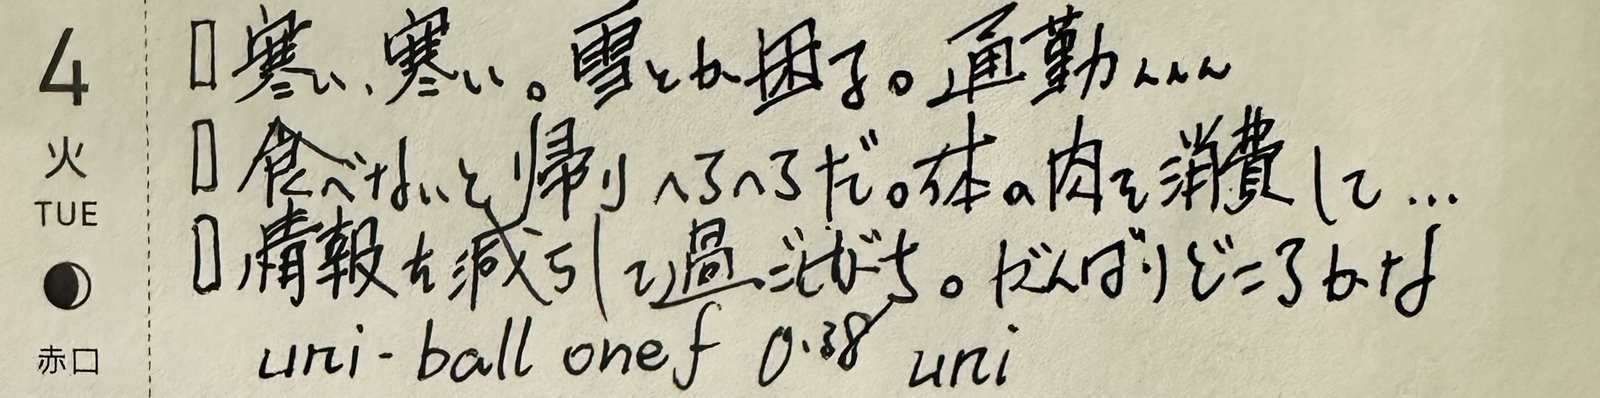 4
火
TUE
赤口
寒い、寒い。雪とか困る。通勤...
食べないと帰りへろへろだ。体の肉を消費して...
情報を減らして過ごしがち。がんばりどころかな
uni-ball one f 0.38 uni